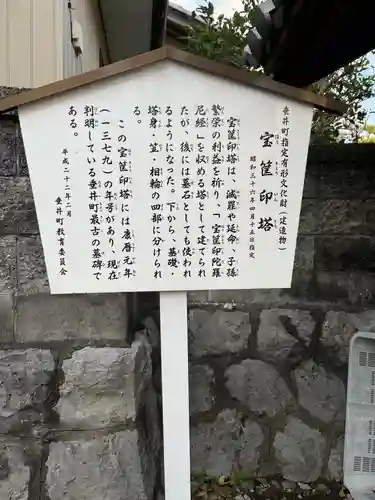 垂井町指定有形文化財(建造物)
宝篋印塔
ほうきょういんとう
昭和三六年四月十五日指定
宝篋印塔は、滅罪や延命、子孫
繁栄の利益を祈り、「宝篋印陀羅
尼経」を収める塔として建てられ
たが、後には墓石としても使われ
るようになった。下から、基礎・
塔身・笠・相輪の四部に分けられ
る。
この宝篋印塔には康暦元年
(一三七九)の年号があり、現在
判明している垂井町最古の墓碑で
ある。
平成二十二年二月
垂井町教育委員会